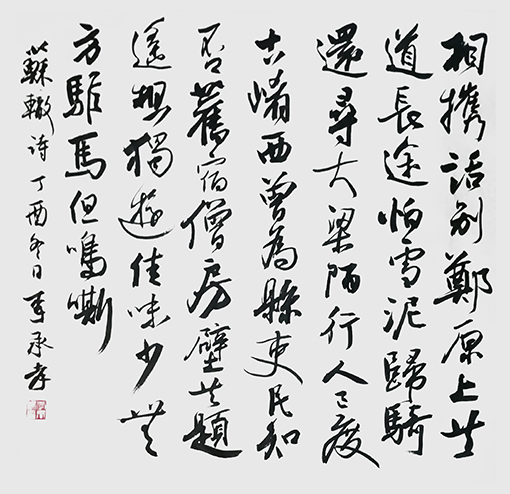 相攜話别鄭原上共
道長途怕雪泥歸騎
還尋大梁陌行人已度
古崤西曾為縣吏民知
否舊宿僧房壁共題
遙想獨遊佳味少無
方騅馬但鳴嘶
蘇轍诗丁酉冬日承孝